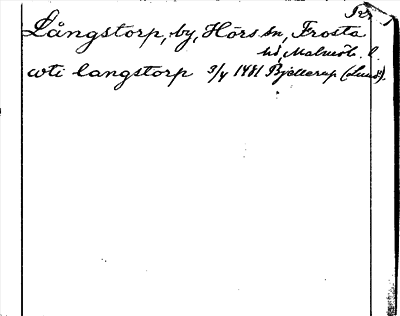 Långstorp, by, Hörs sn, Frosta
hd, Malmöh. l.
wti langstorp 3/4 1481 Bjellerup (Lund).